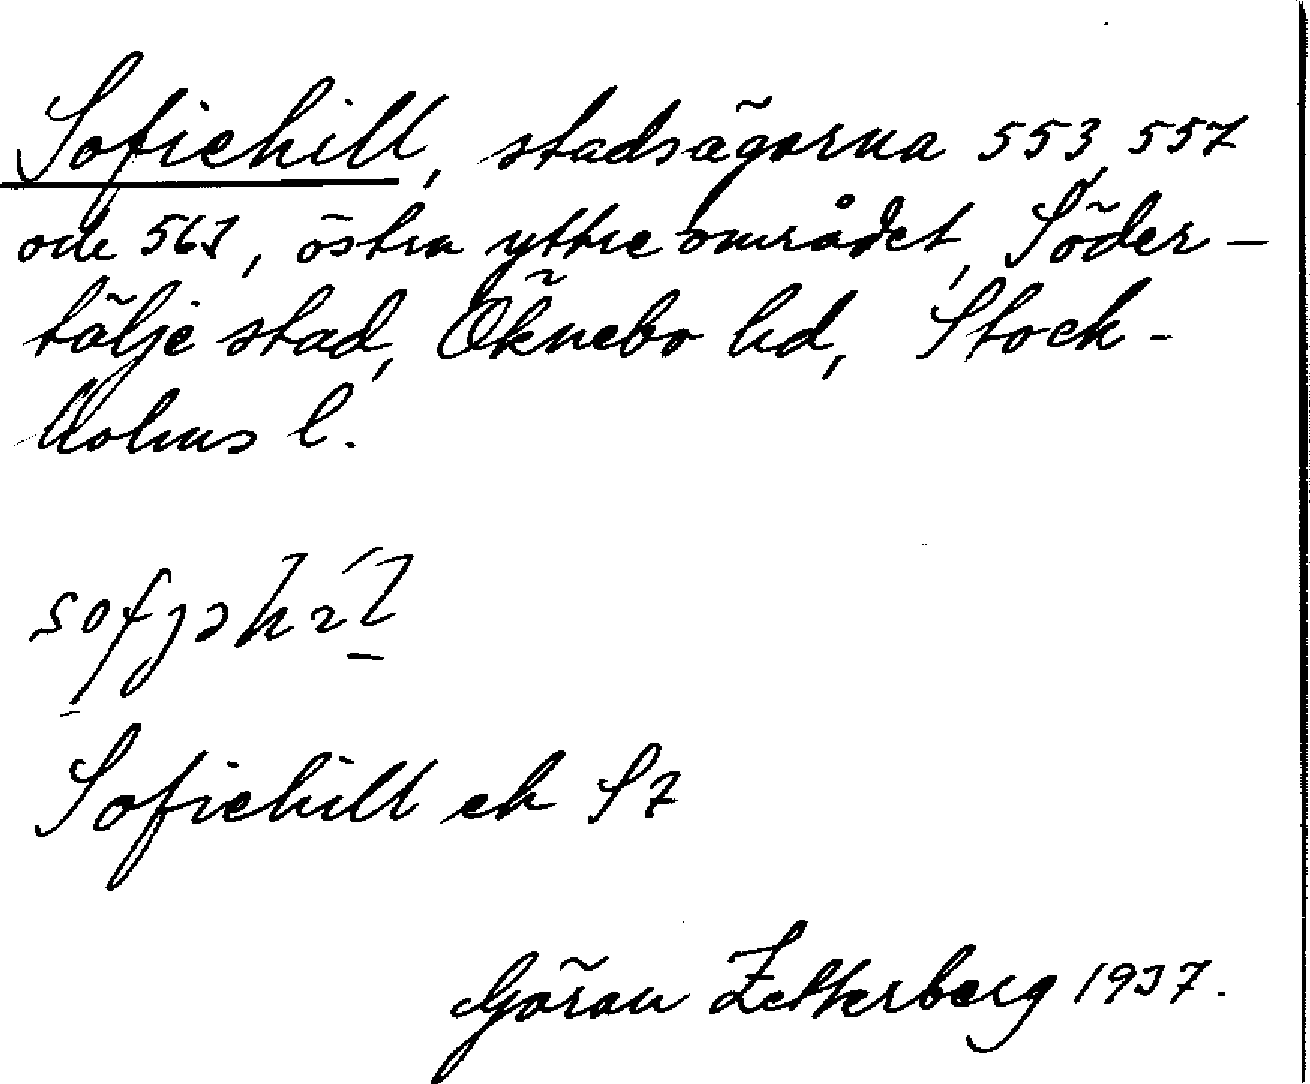 Sofiehill, stadsägorna 553, 557
och 563, östra yttre området, Söder-
tälje stad, Öknebo hd, Stock-
holms l.
Sofiehill ek S 7
Göran Zetterberg 1937.